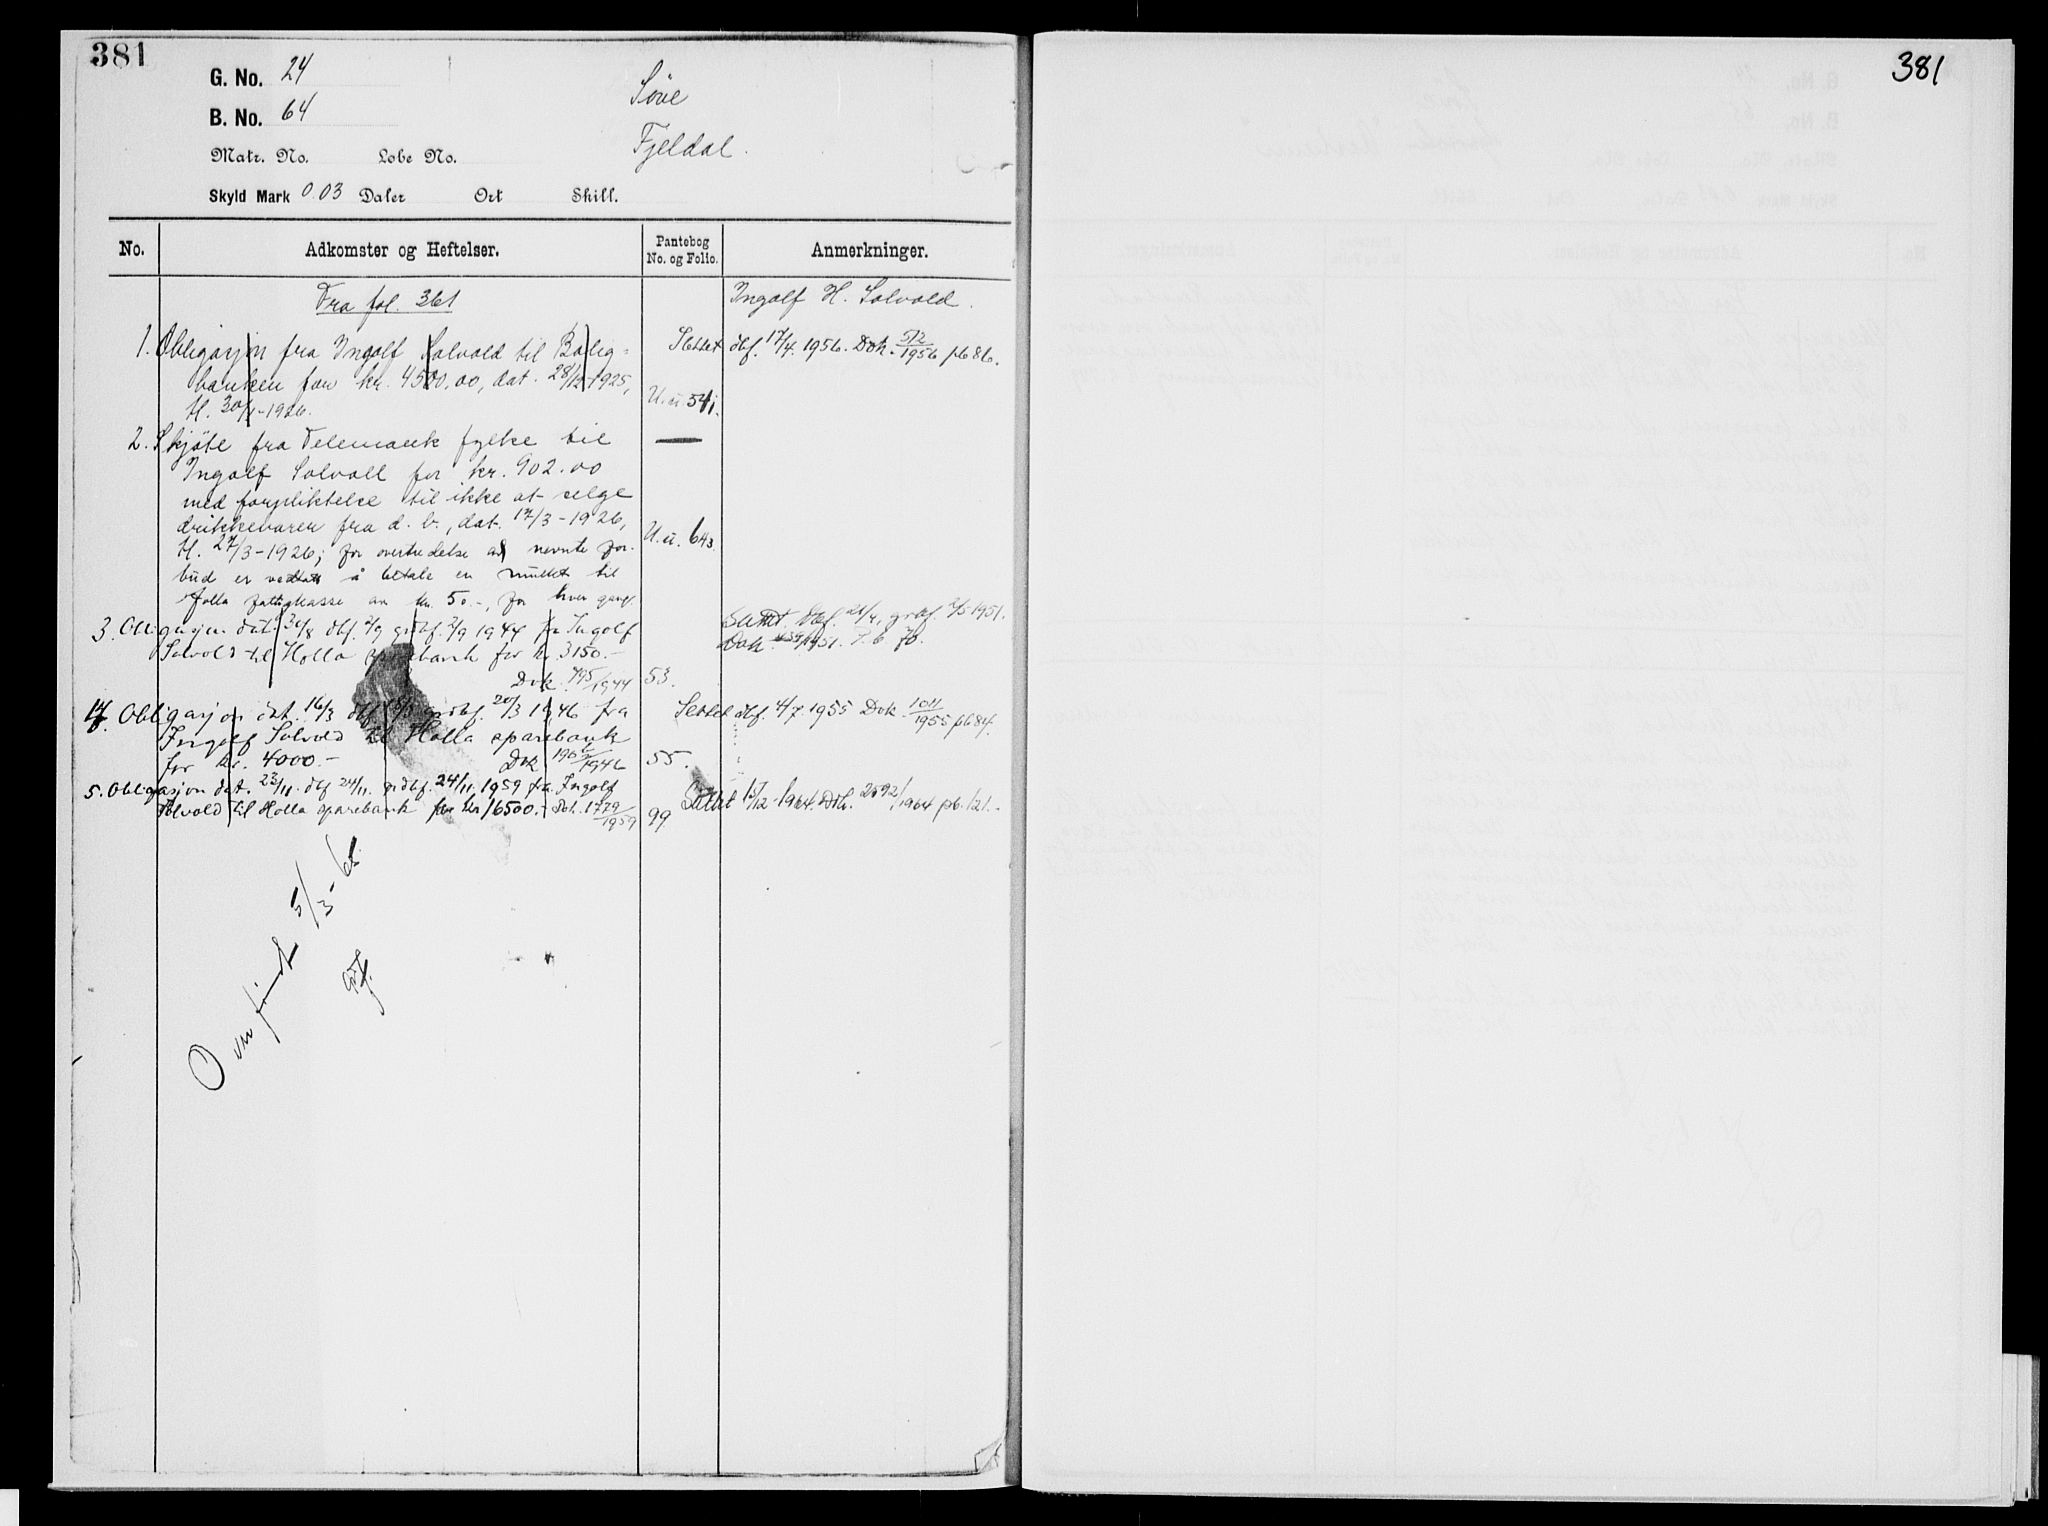 381
381
G. No. 24
B. No. 64
Søve
Fjeldal.
Matr. No. Løbe No.
Skyld Mark 0.03 Daler Ort Skill.
No. Adkomster og Heftelser. Pantebog No. og Folio. Anmerkninger.
Fra fol. 361
Ingolf H. Solvold.
1. Obligasjon fra Ingolf Solvold til Bolig-
banken for kr. 4500,00, dat. 28/12-1925,
tl. 30/1-1926. U.u. 541.
Slettet dbf. 17/4. 1956. Dok. 572/1956 pb 86.
2. Skjøte fra Telemark fylke til —
Ingolf Solvoll for kr. 902.00
med forpliktelse til ikke at selge
drikkevarer fra d. b., dat. 17/3-1926,
tl. 27/3-1926; for overtredelse av nevnte for- U.u. 643.
bud er vedtatt å betale en mulkt til
Holla fattigkasse av kr. 50.-, for hver gang.
3. Obligasjon dat. 30/8 dbf. 2/9 grbf. 2/9 1944 fra Ingolf
Solvold til Holla sparebank for kr. 3150.-
Dok. 795/1944 53.
Slettet. dbf. 21/4, grbf. 2/5 1951.
Dok. 1951. P.b 70.
4. Obligasjon dat. 16/3 dbf. grdbf. 20/3 1946 fra
Ingolf Solvold til Holla sparebank
for kr. 4000.- Dok 1946 55.
Slettet dbf. 4/7. 1955 Dok 1011/1955 pb 84.
5. Obligasjon dat. 23/11. dbf 24/11. grdbf. 24/11. 1959 fra Ingolf
Solvold til Holla sparebank for kr 16500.- Dok. 1779/1959 99.
Slettet 15/12-1964. Dok. 2592/1964 pb. 121.-
Overført 5/3-65